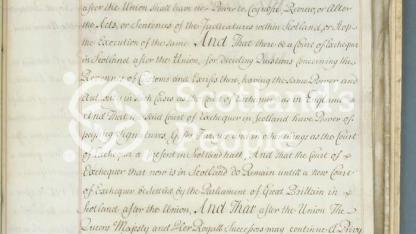 after the Union shall have no Power to Cognosce Review or Alter
the Acts, or Sentences of the Judicatures within Scotland, or stop
the Execution of the same And That there be a Court of Exchequer
in Scotland after the Union, for deciding Questions concerning the
Revenues of Customs and Excises there, having the same Power and
Authority in such Cases as the Court of Exchequer has in England
And that the said Court of Exchequer in Scotland have Power of
passing Signatures, Gifts Tutories and in other things as the Court
of Exchequer at present in Scotland hath, And That the Court of
Exchequer that now is in Scotland do Remain until a new Court
of Exchequer be settled by the Parliament of Great Brittain in
Scotland after the Union, And That after the Union The
Queens Majesty and Her Royall Successors may continue a Privy
Scotland's
People